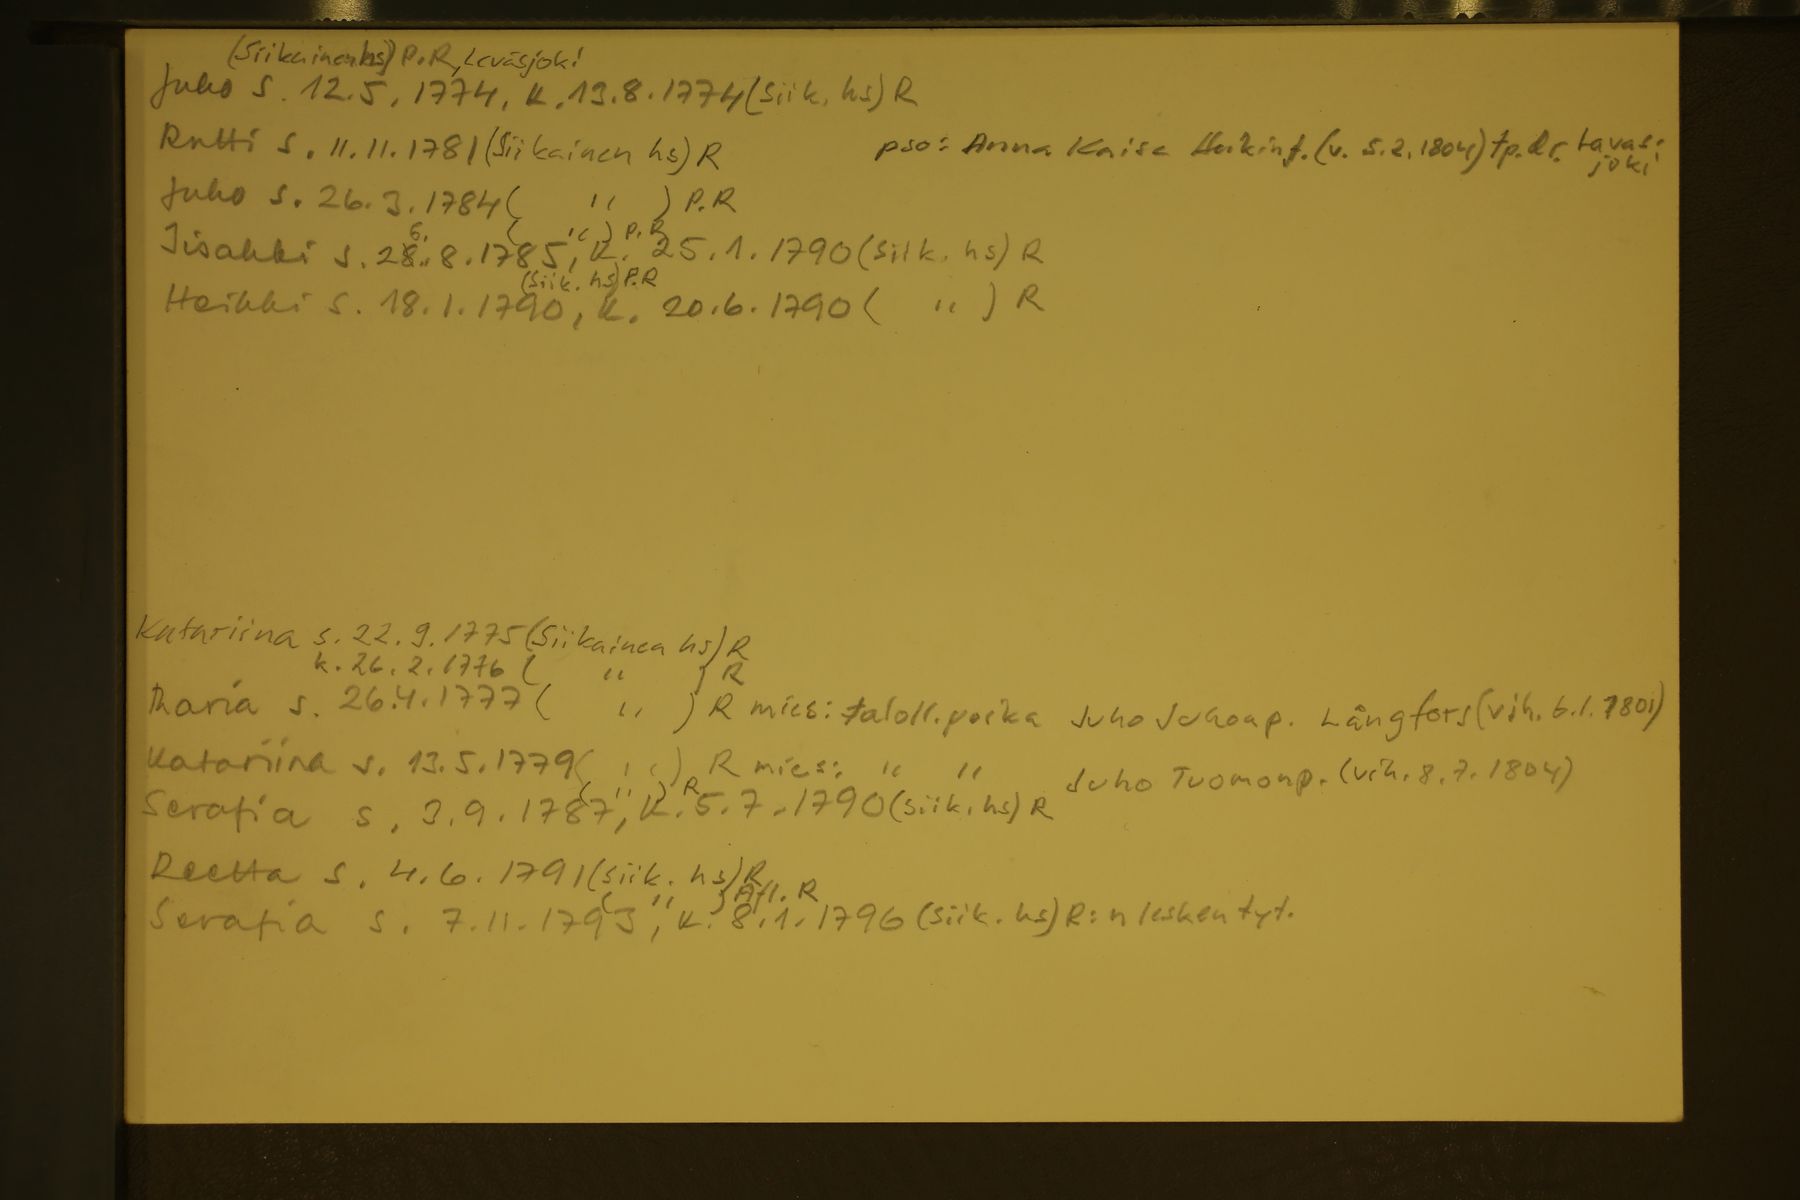 (Siikainen hs) P.R, Leväsjoki
Juho s. 12.5.1774, k. 13.8.1774 (Siik. hs) R
Antti s. 11.11.1781 (Siikainen hs) R pso: Anna Kaisa Heikint. (v. 5.2.1804) tp. R:r.
Juho s. 26.3.1784 ( " ) P.R
6. ( " ) P.R
Iisakki s. 28.8.1785, k. 25.1.1790 (Siik. hs) R
(Siik. hs) P.R
Heikki s. 18.1.1790, k. 20.6.1790 ( " ) R
Katariina s. 22.9.1775 (Siikainen hs) R
k. 26.2.1776 ( " ) R
Maria s. 26.4.1777 ( " ) R mies: taloll. poika Juho Juhonp. Långfors (vih. 6.1.1801)
Katariina s. 13.5.1779 ( " ) R mies: " " Juho Tuomonp. (vih. 8.7.1804)
( " ) R
Serafia s. 3.9.1787, k. 5.7.1790 (Siik. hs) R
Reetta s. 4.6.1791 (Siik. hs) R
( " ) Afl. R
Serafia s. 7.11.1793, k. 8.1.1796 (Siik. hs) R:n lesken tyt.